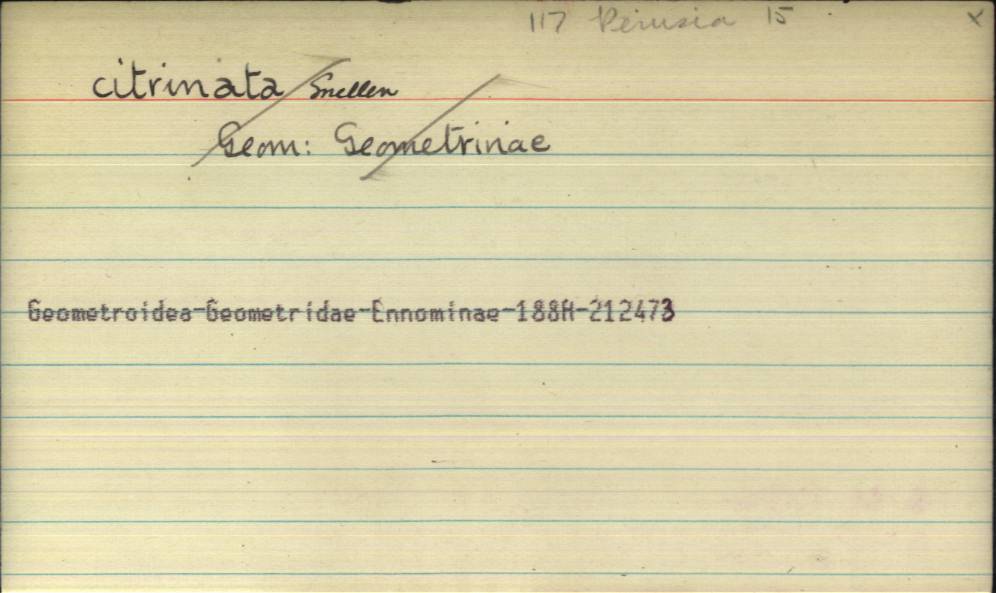 117 Perusia 15 x
citrinata Snellen
Geom: Geometrinae
Geometroidea-Geometridae-Ennominae-188A-212473